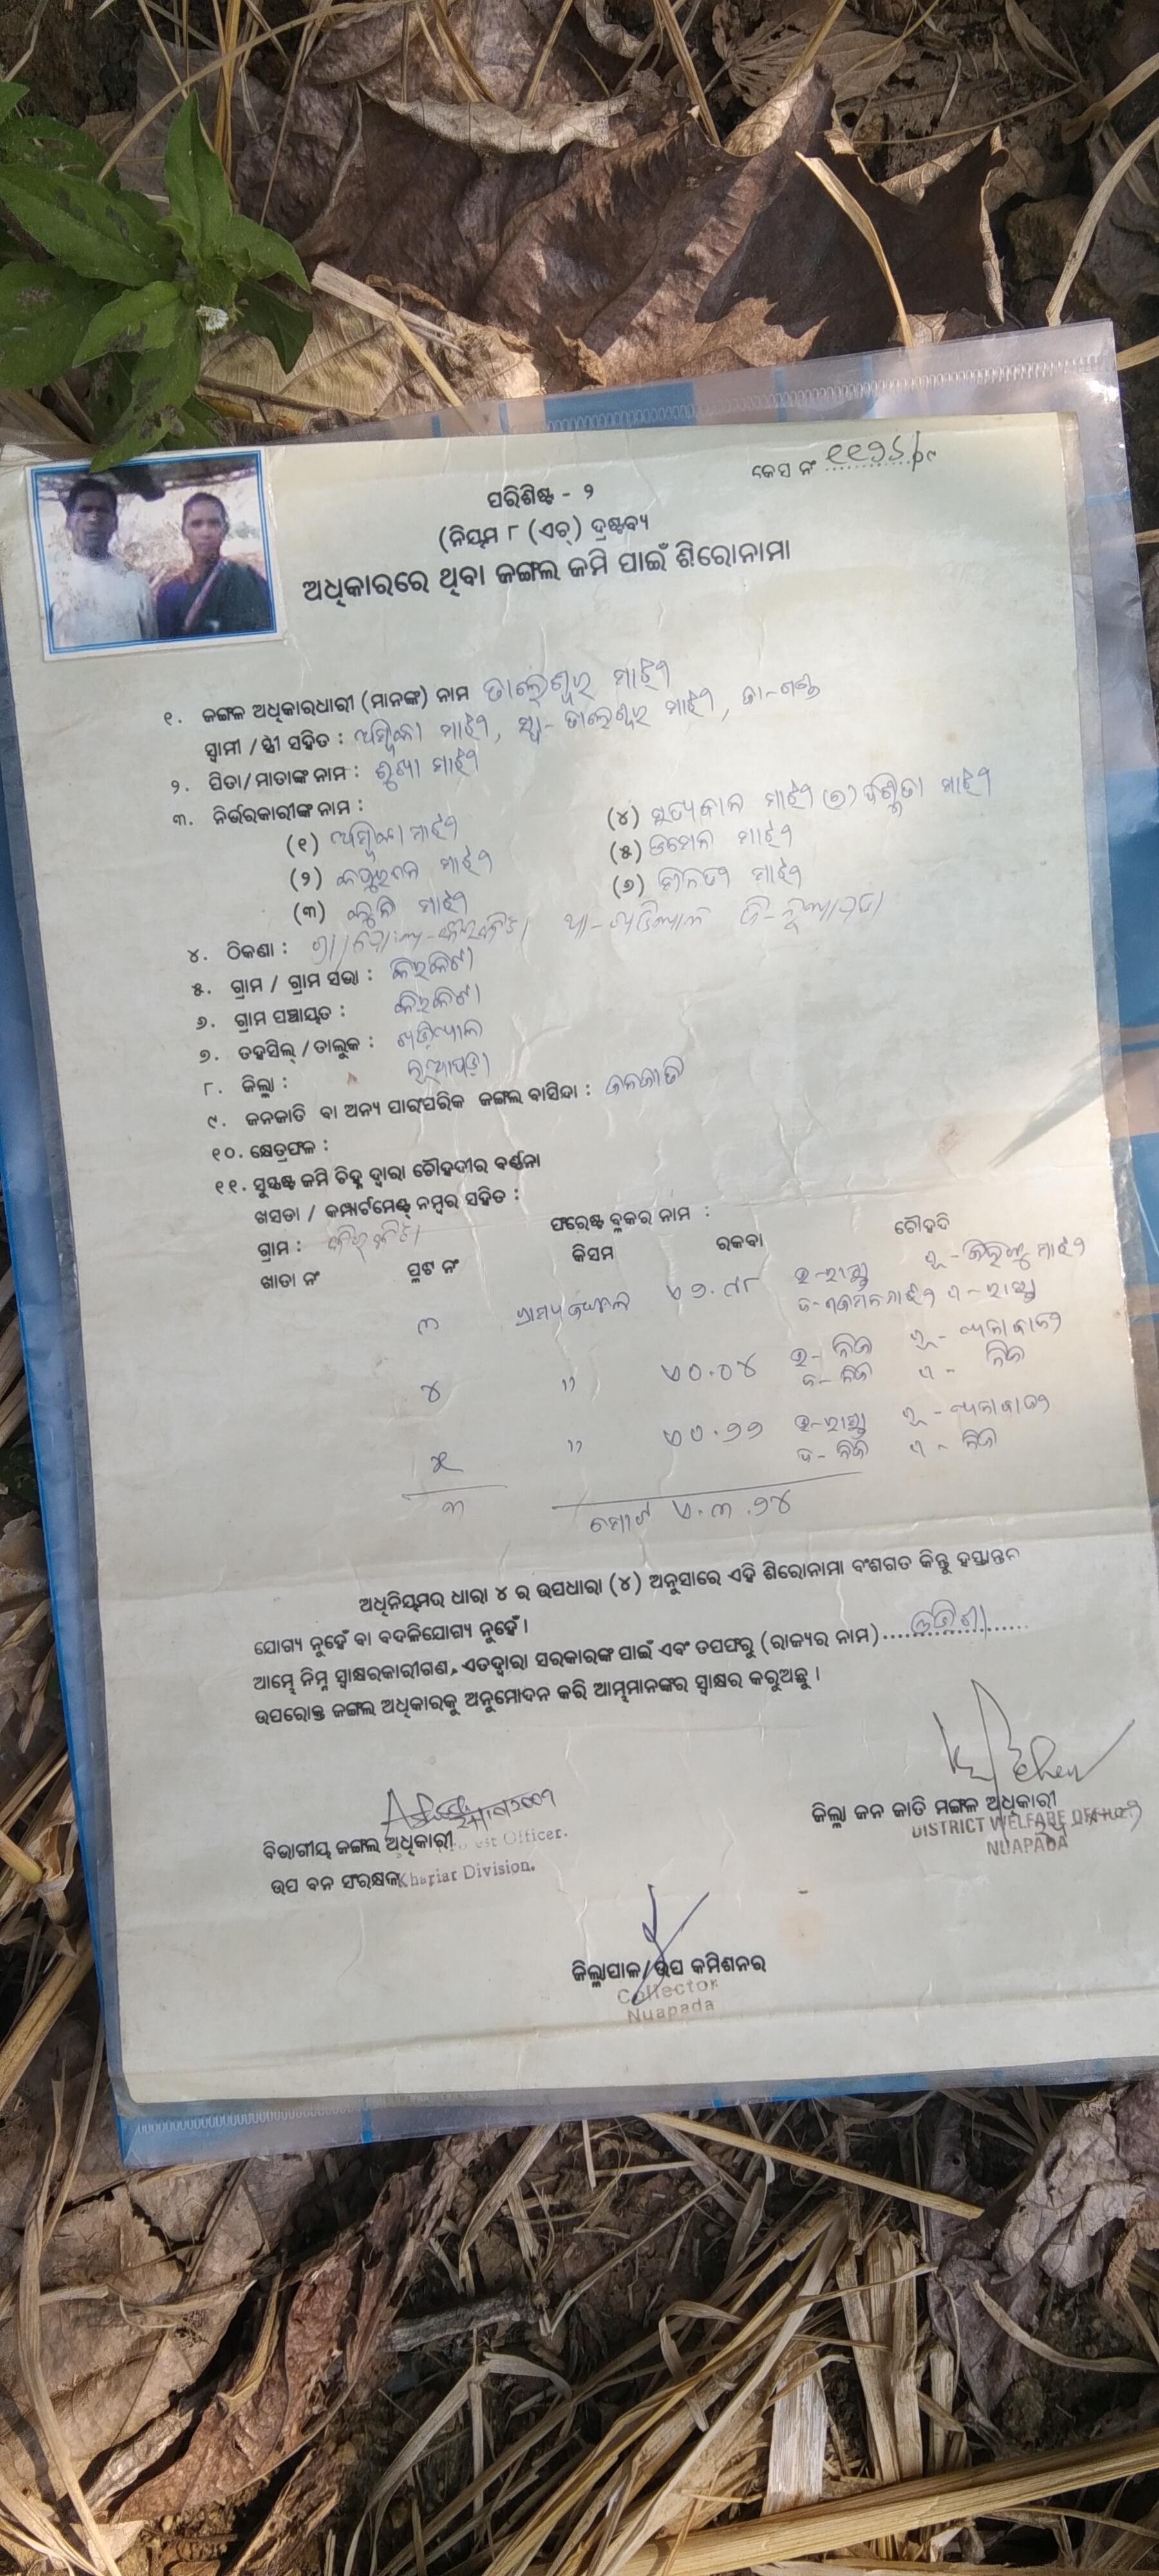 କେସ ନଂ ୧୧୨୬/୦୯
ପରିଶିଷ୍ଟ - ୨
(ନିୟମ ୮ (ଏଚ୍) ଦ୍ରଷ୍ଟବ୍ୟ
ଅଧିକାରରେ ଥିବା ଜଙ୍ଗଲ ଜମି ପାଇଁ ଶିରୋନାମା
୧. ଜଙ୍ଗଳ ଅଧିକାରଧାରୀ (ମାନଙ୍କ) ନାମ ତାଲେଶ୍ୱର ମାଝୀ
ସ୍ୱାମୀ / ସ୍ତ୍ରୀ ସହିତ : ଅମ୍ବିକା ମାଝୀ, ସ୍ୱା- ତାଲେଶ୍ୱର ମାଝୀ, ଜା-ଗଣ୍ଡ
୨. ପିତା/ମାତାଙ୍କ ନାମ : ଶୁଖା ମାଝୀ
୩. ନିର୍ଭରକାରୀଙ୍କ ନାମ :
(୧) ଅମ୍ବିକା ମାଝୀ
(୨) ମାଝୀ
(୩) ମାଝୀ
(୪) ସତ୍ୟବାନ ମାଝୀ (୭) ମାଝୀ
(୫) ମାଝୀ
(୬) ମାଝୀ
୪. ଠିକଣା : ଗ୍ରା/ପୋଃଅ-କିରକିଟା ଥା-ଖଡିଆଳ ଜି-ନୂଆପଡା
୫. ଗ୍ରାମ / ଗ୍ରାମ ସଭା : କିରକିଟା
୬. ଗ୍ରାମ ପଞ୍ଚାୟତ : କିରକିଟା
୭. ତହସିଲ୍ / ତାଲୁକ : ଖଡ଼ିଆଳ
୮. ଜିଲ୍ଲା : ନୂଆପଡ଼ା
୯. ଜନଜାତି ବା ଅନ୍ୟ ପାରଂପରିକ ଜଙ୍ଗଲ ବାସିନ୍ଦା : ଜନଜାତି
୧୦. କ୍ଷେତ୍ରଫଳ :
୧୧. ସୁସ୍ପଷ୍ଟ ଜମି ଚିହ୍ନ ଦ୍ୱାରା ଚୌହଦୀର ବର୍ଣ୍ଣନା
ଖସଡା / କମ୍ପାର୍ଟମେଣ୍ଟ୍ ନମ୍ବର ସହିତ :
ଗ୍ରାମ : କିରକିଟା ଫରେଷ୍ଟ ବ୍ଲକର ନାମ :
ଖାତା ନଂ ପ୍ଲଟ ନଂ କିସମ ରକବା ଚୌହଦି
୩ ଗ୍ରାମ୍ୟ ଜଙ୍ଗଲ ଏ ୨.୯୮ ଉ-ରାସ୍ତା ପୂ- ମାଝୀ
ଦ- ମାଝୀ ପ-ରାସ୍ତା
୪ " ଏ ୦.୦୪ ଉ- ନିଜ ପୂ-
ଦ- ନିଜ ପ- ନିଜ
୫ " ଏ ୦.୨୨ ଉ-ରାସ୍ତା ପୂ-
ଦ- ନିଜ ପ- ନିଜ
୩ ମୋଟ ଏ.୩.୨୪
ଅଧିନିୟମର ଧାରା ୪ ର ଉପଧାରା (୪) ଅନୁସାରେ ଏହି ଶିରୋନାମା ବଂଶଗତ କିନ୍ତୁ ହସ୍ତାନ୍ତର
ଯୋଗ୍ୟ ନୁହେଁ ବା ବଦଳିଯୋଗ୍ୟ ନୁହେଁ ।
ଆମ୍ଭେ ନିମ୍ନ ସ୍ୱାକ୍ଷରକାରୀଗଣ, ଏତଦ୍ୱାରା ସରକାରଙ୍କ ପାଇଁ ଏବଂ ତପଫରୁ (ରାଜ୍ୟର ନାମ) ଓଡିଶା
ଉପରୋକ୍ତ ଜଙ୍ଗଲ ଅଧିକାରକୁ ଅନୁମୋଦନ କରି ଆମ୍ଭମାନଙ୍କର ସ୍ୱାକ୍ଷର କରୁଅଛୁ ।
ବିଭାଗୀୟ ଜଙ୍ଗଲ ଅଧିକାରୀ
Officer.
ଉପ ବନ ସଂରକ୍ଷକ
Khariar Division.
ଜିଲ୍ଲା ଜନ ଜାତି ମଙ୍ଗଳ ଅଧିକାରୀ
DISTRICT WELFARE OFFICER
NUAPADA
ଜିଲ୍ଲାପାଳ/ଉପ କମିଶନର
Collector
Nuapada